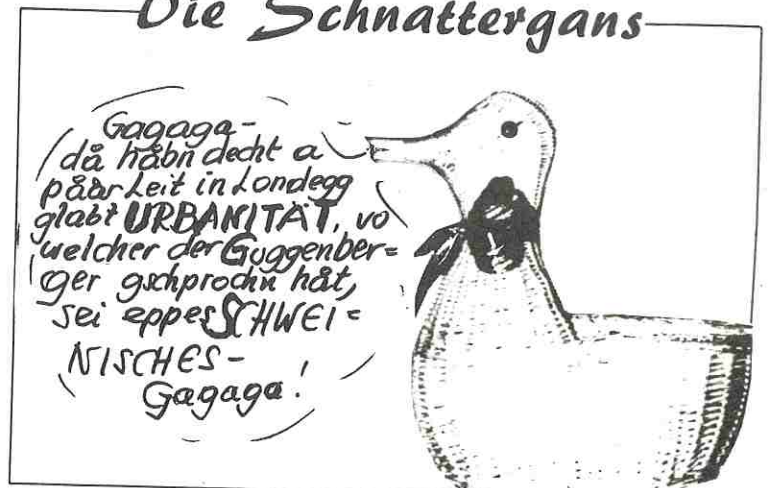 Die Schnattergans
Gagaga-
då håbn decht a
påår Leit in Londegg
glabt URBANITÄT, vo
welcher der Guggenber=
ger gschprochn håt,
sei eppes SCHWEI=
NISCHES-
Gagaga!